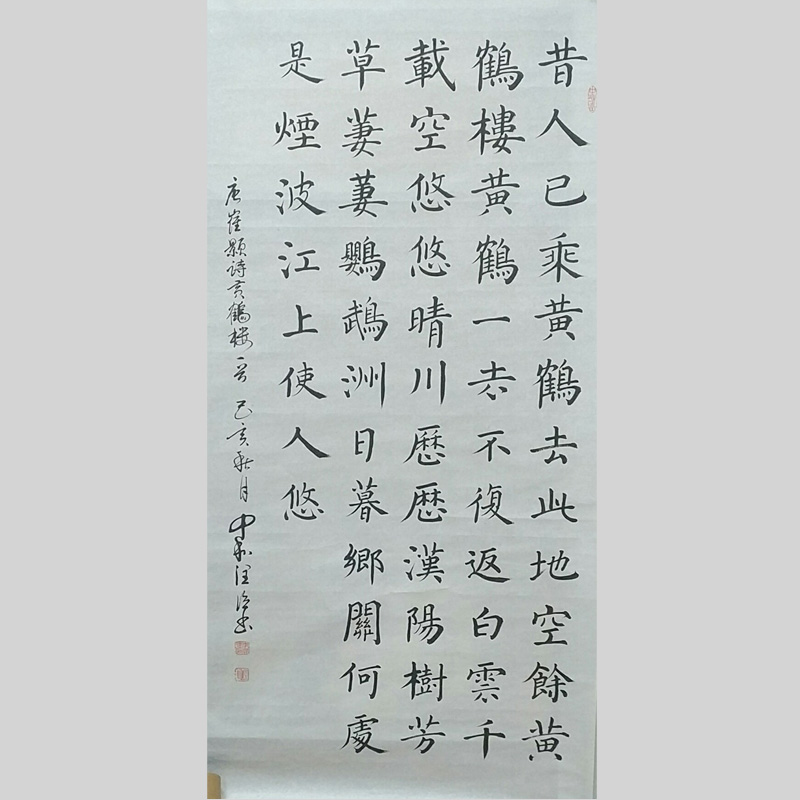 昔人已乘黃鶴去此地空餘黃
鶴樓黃鶴一去不復返白雲千
載空悠悠晴川歷歷漢陽樹芳
草萋萋鸚鵡洲日暮鄉關何處
是煙波江上使人悠
唐崔顥詩黃鶴樓一首己亥秋月書